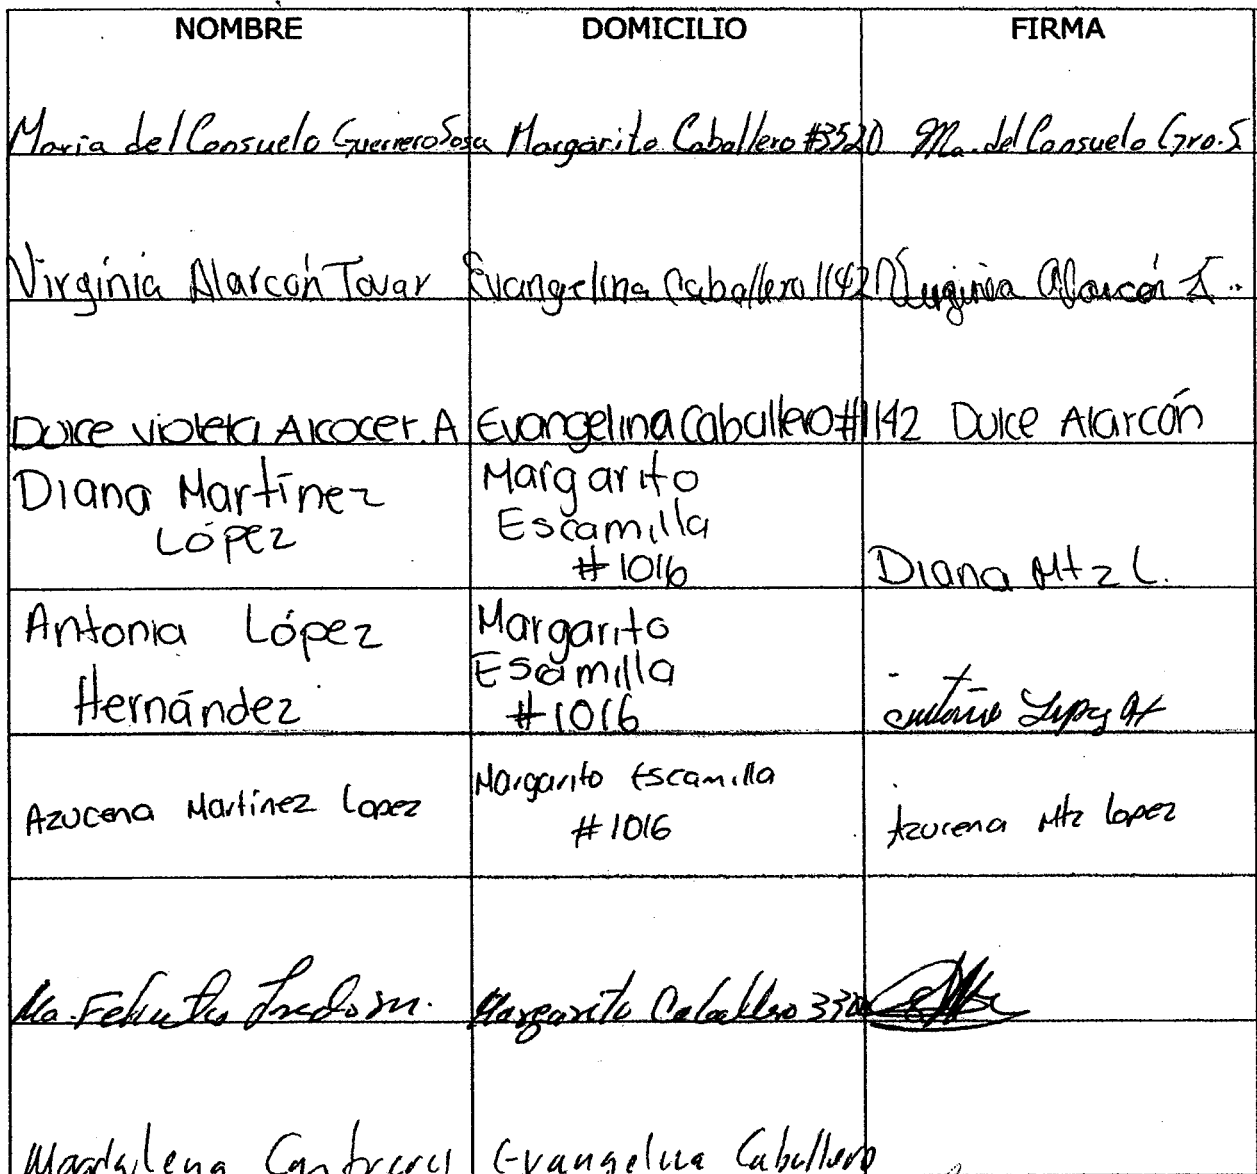 NOMBRE DOMICILIO FIRMA
Maria del Consuelo Guerrero Sosa Margarito Caballero #3520 Ma. del Consuelo Gro. S
Virginia Alarcón Tovar Evangelina Caballero 1142 Virginia Alarcón T.
Dulce violeta Alcocer. A Evangelina Caballero #1142 Dulce Alarcón
Diana Martínez
López
Margarito
Escamilla
#1016
Diana Mtz L.
Antonia López
Hernández
Margarito
Escamilla
#1016
Antonia Lopez H
Azucena Martínez Lopez
Margarito Escamilla
#1016
Azucena Mtz Lopez
Ma. Margarito Caballero
Magdalena Contreras Evangelina Caballero